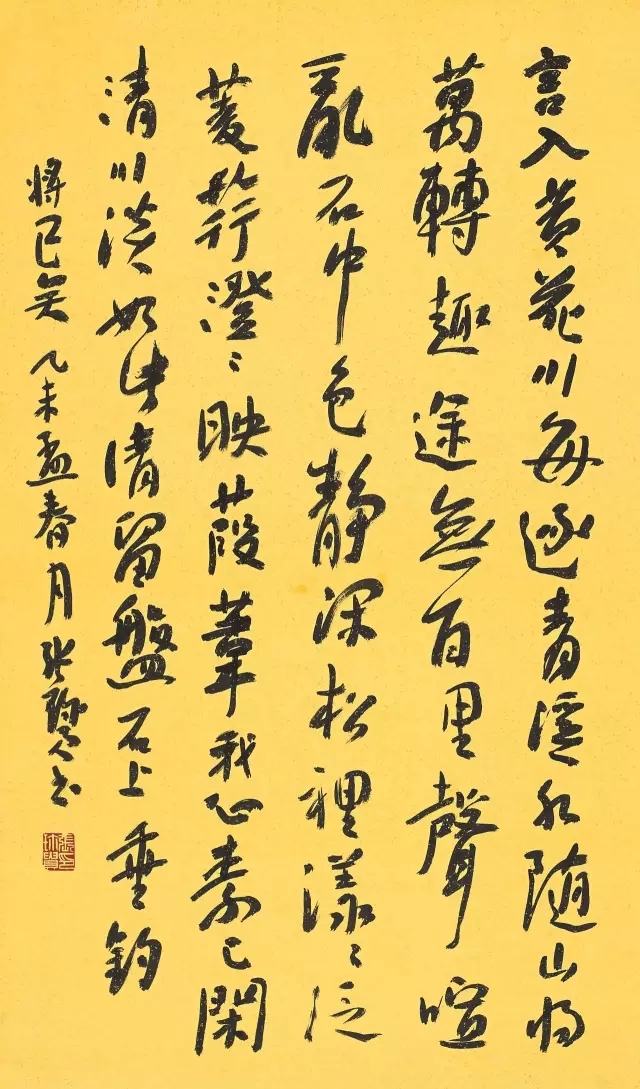 言入黄花川每逐青溪水随山将
萬轉趣途無百里聲喧
亂石中色靜深松裡漾〻泛
菱荇澄〻映葭葦我心素已閑
清川淡如此請留盤石上垂釣
將已矣 乙未孟春月 张 书